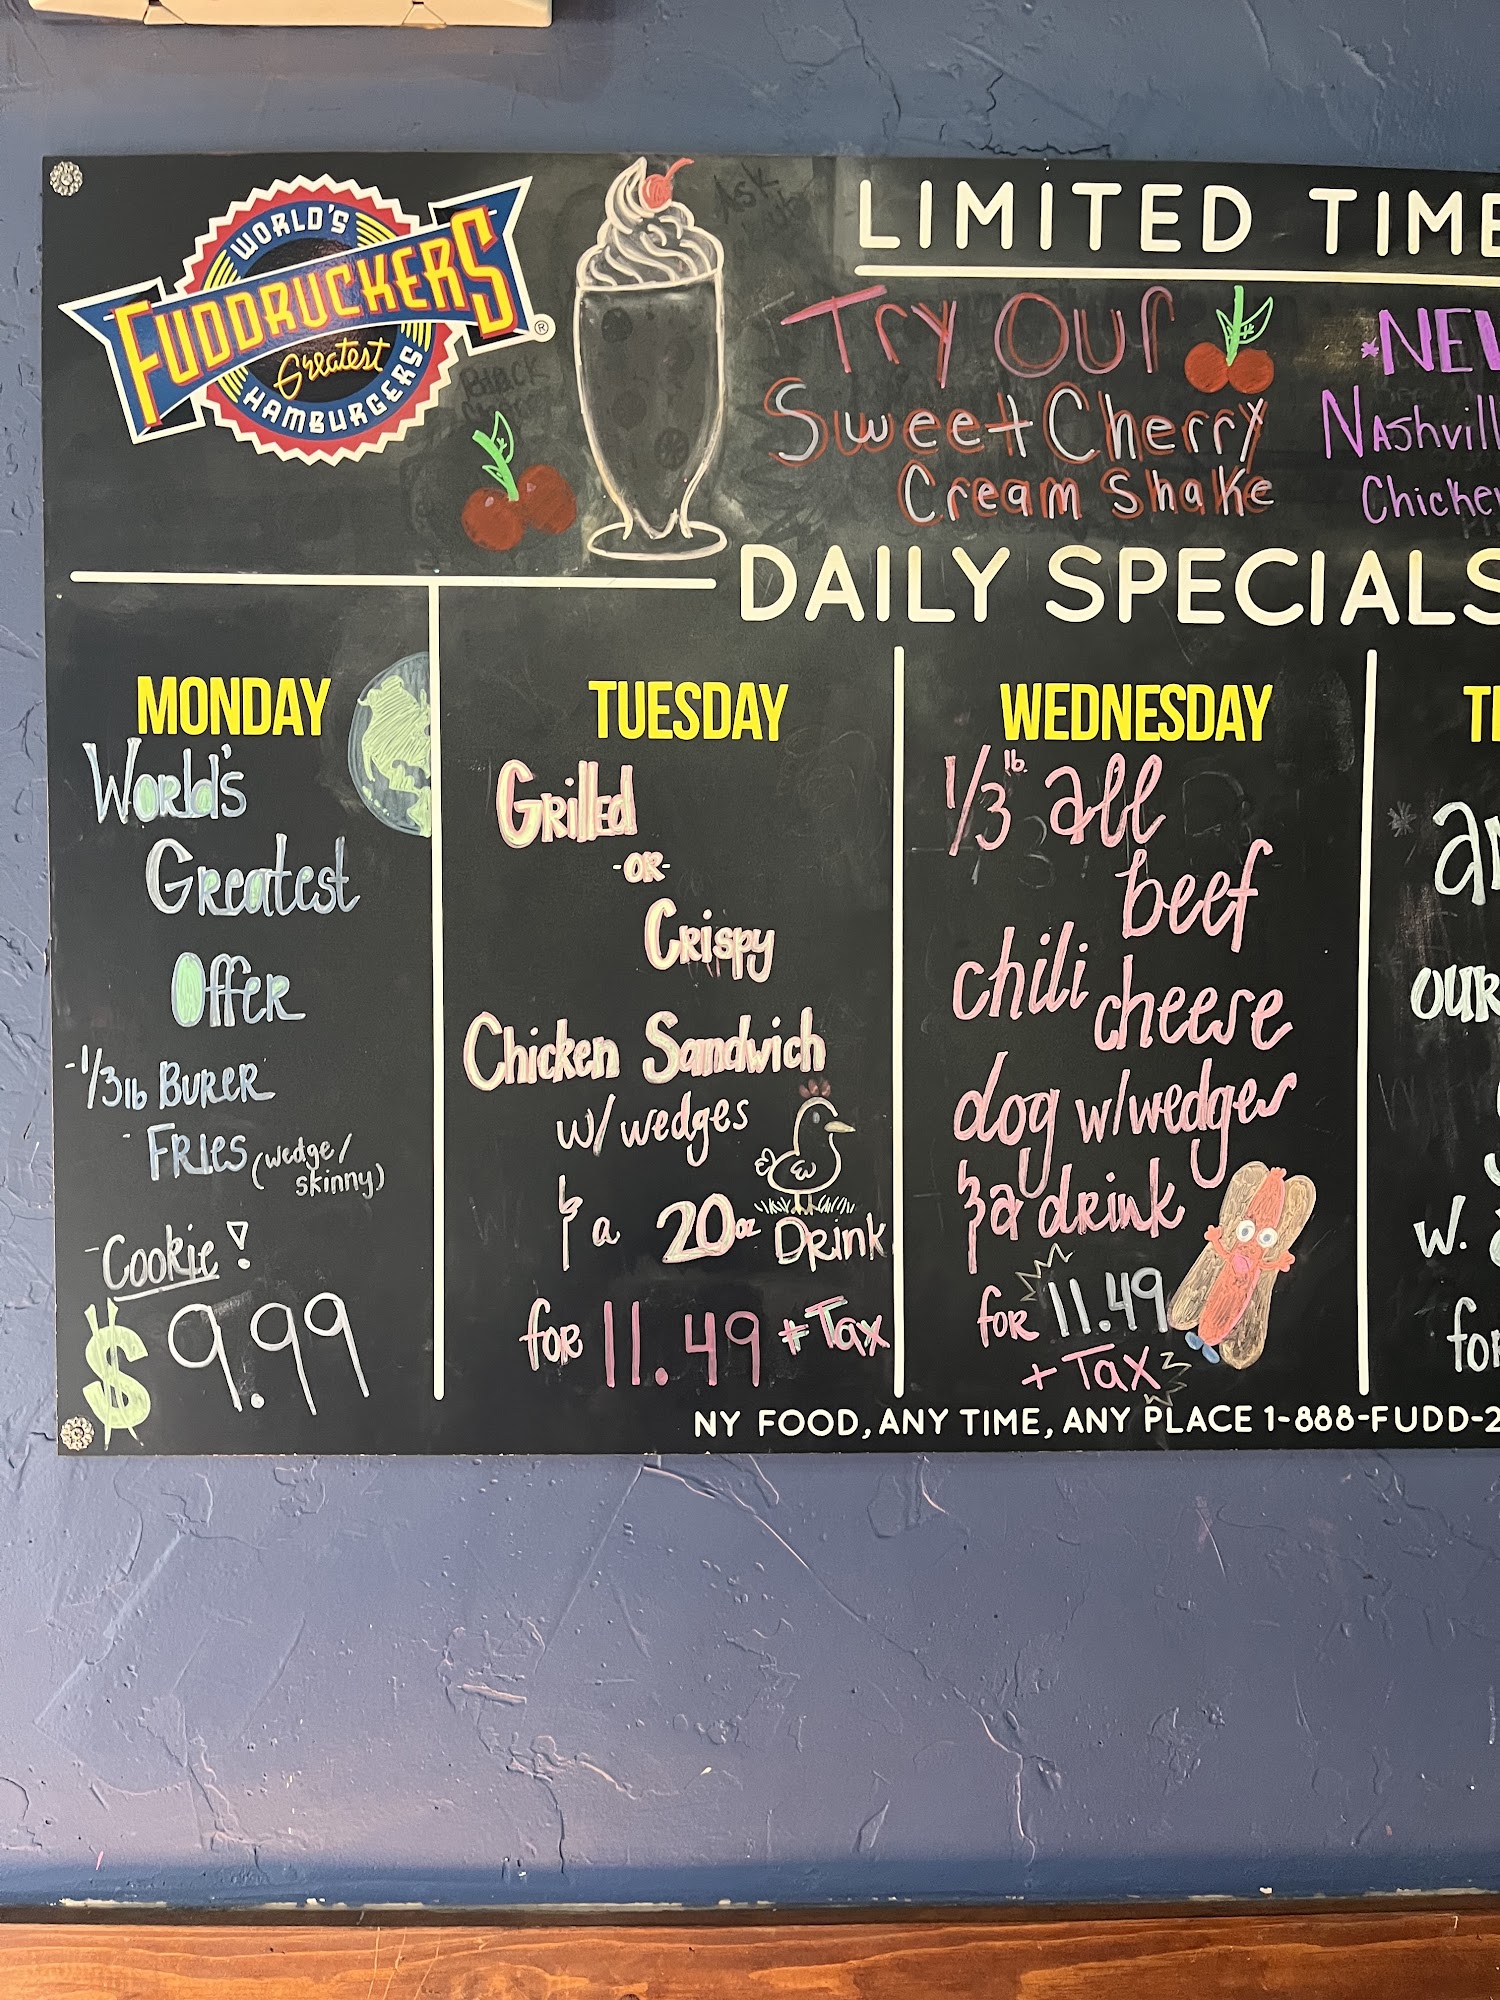 WORLD'S
FUDDRUCKERS®
Greatest
HAMBURGERS
LIMITED TIME
Try Our
Sweet Cherry
Cream Shake
*NEW
Nashvill
Chicken
DAILY SPECIALS
MONDAY
World's
Greatest
Offer
-1/3lb BURER
-FRIES (wedge/
skinny)
-Cookie!
$9.99
TUESDAY
Grilled
-OR-
Crispy
Chicken Sandwich
w/ wedges
& a 20oz Drink
for 11.49 + Tax
WEDNESDAY
1/3 lb. all
beef
chili cheese
dog w/wedges
& a drink
for 11.49
+ Tax
OUR
w.
for
NY FOOD, ANY TIME, ANY PLACE 1-888-FUDD-2